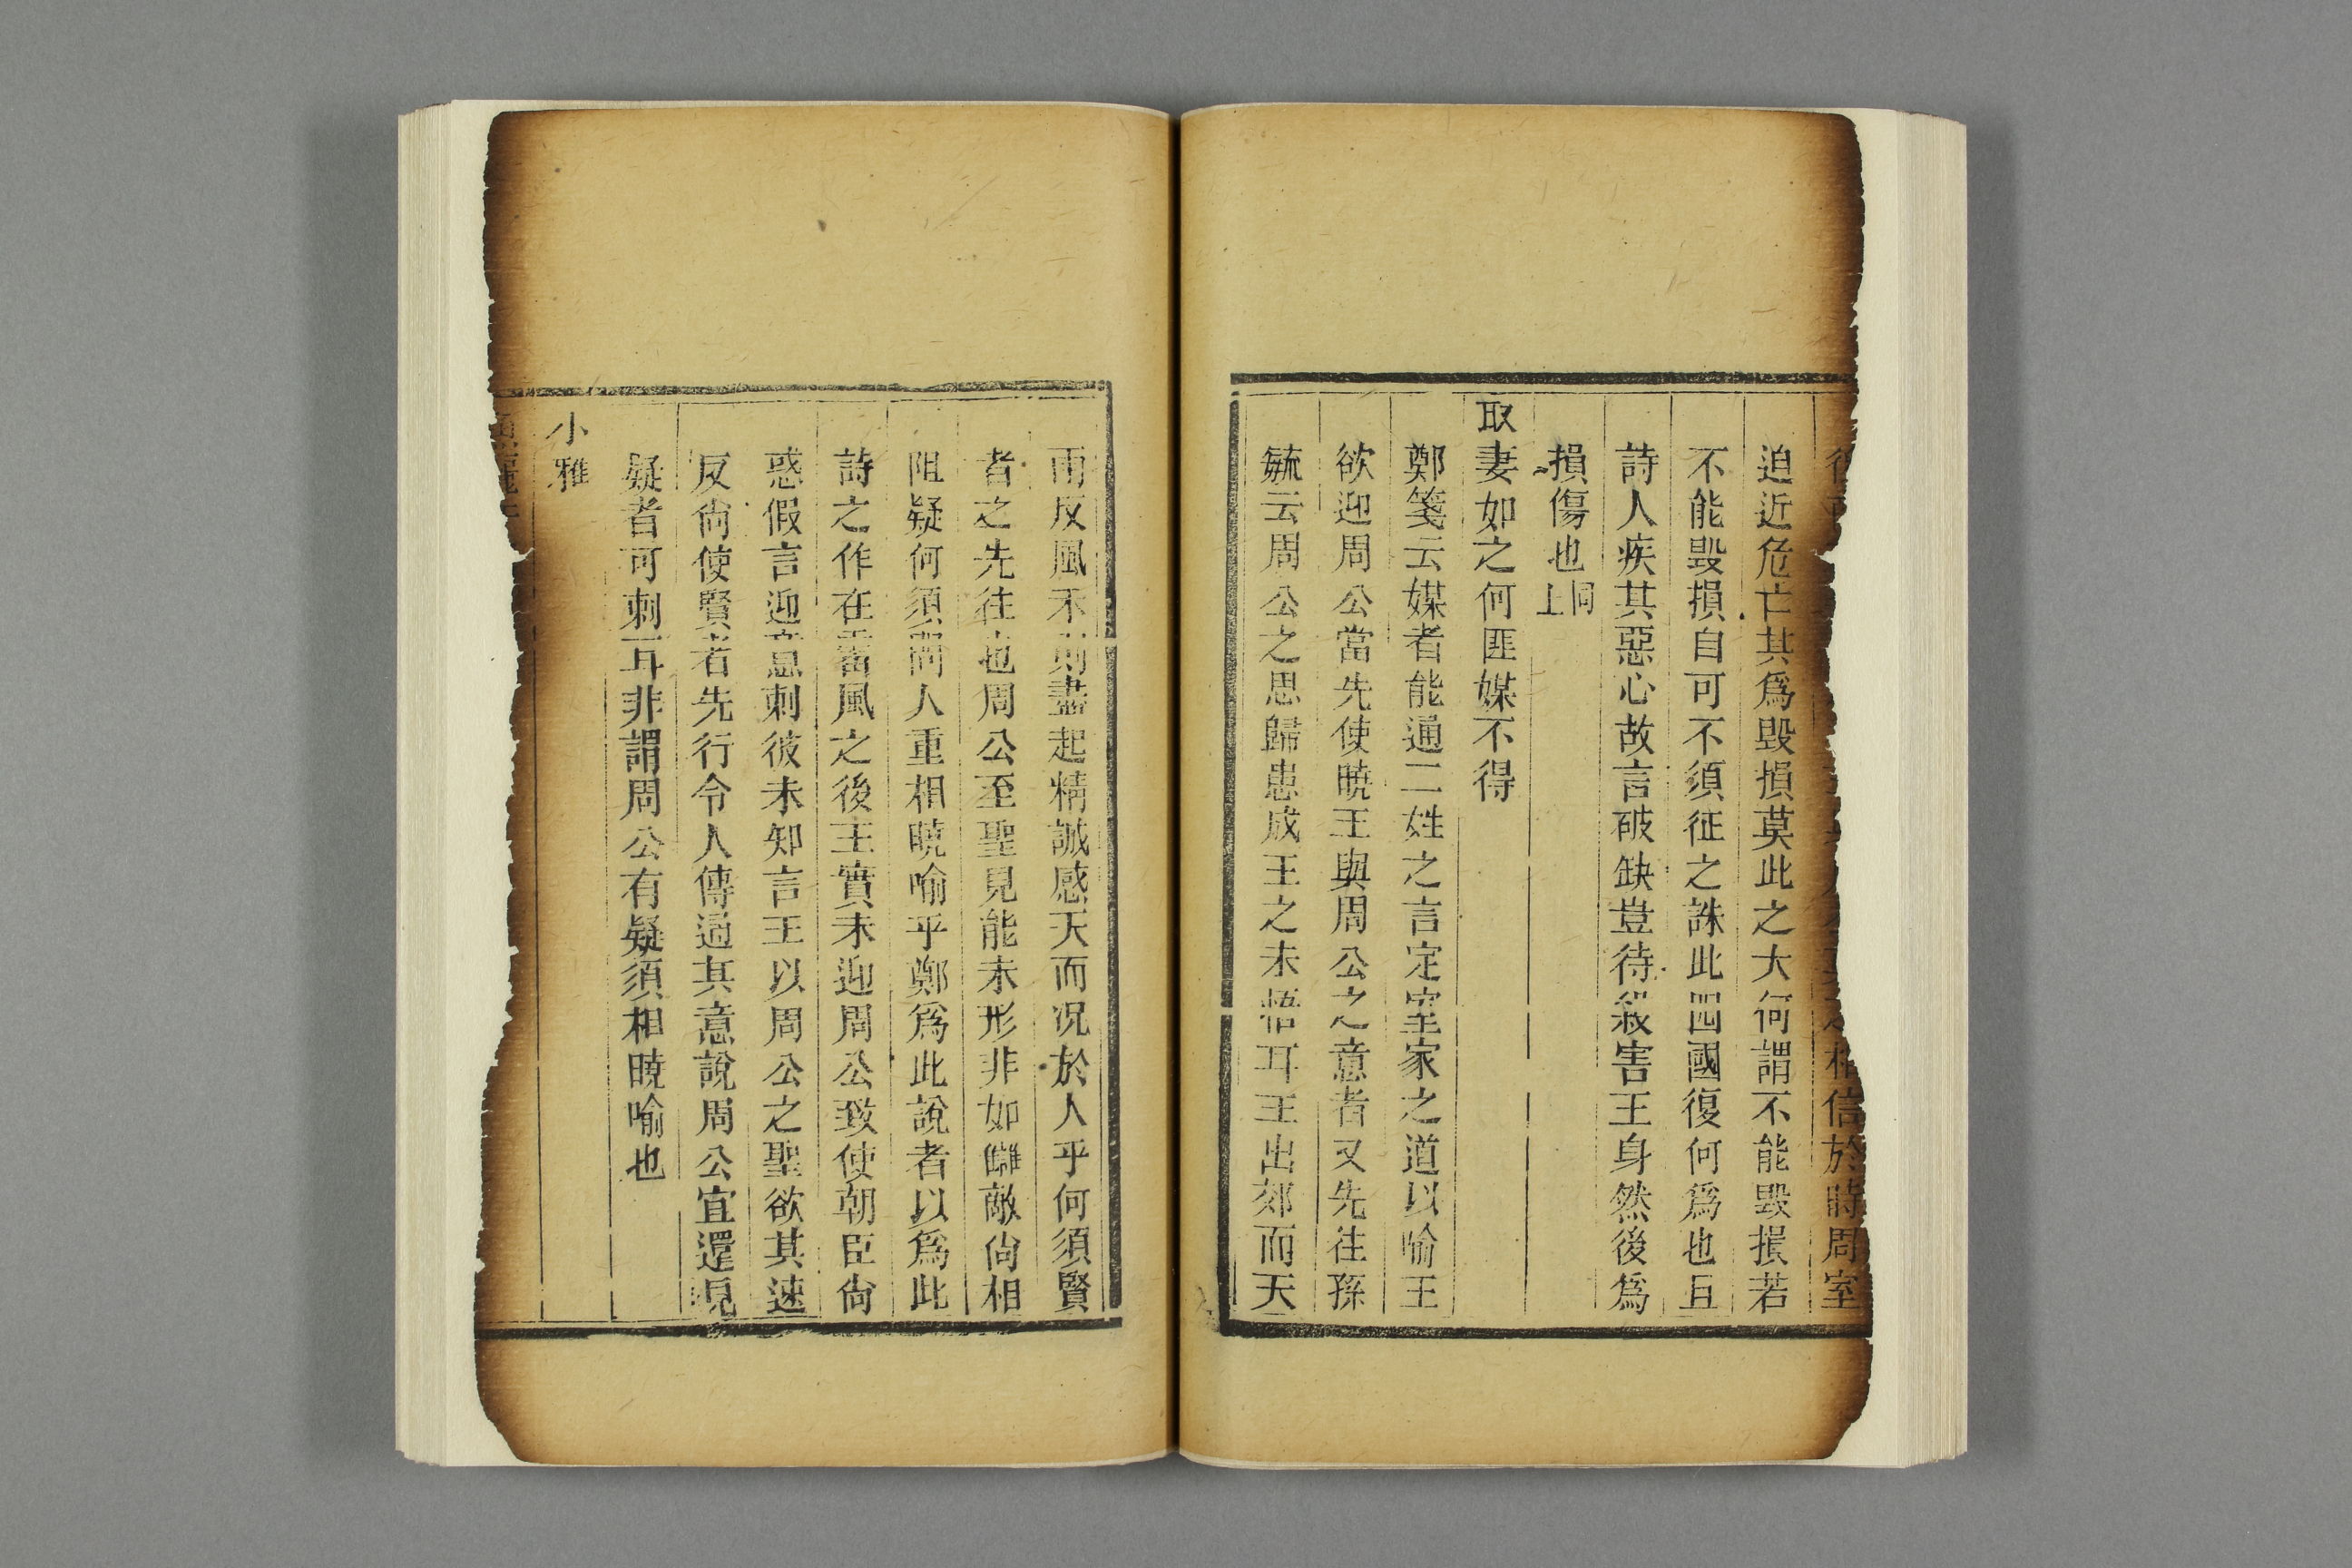 相信於時周室
迫近危亡其爲毀損莫此之大何謂不能毀損若
不能毀損自可不須征之誅此四國復何爲也且
詩人疾其惡心故言破缺豈待殺害王身然後爲
損傷也同上
取妻如之何匪媒不得
鄭箋云媒者能通二姓之言定室家之道以喻王
欲迎周公當先使曉王與周公之意者又先往孫
毓云周公之思歸患成王之未悟耳王出郊而天
雨反風禾則盡起精誠感天而况於人乎何須賢
者之先往也周公至聖見能未形非如讎敵尙相
阻疑何須問人重相曉喻乎鄭爲此說者以爲此
詩之作在雷風之後王實未迎周公致使朝臣尙
惑假言迎意刺彼未知言王以周公之聖欲其速
反尙使賢者先行令人傳通其意說周公宜還見
疑者可刺耳非謂周公有疑須相曉喻也
小雅